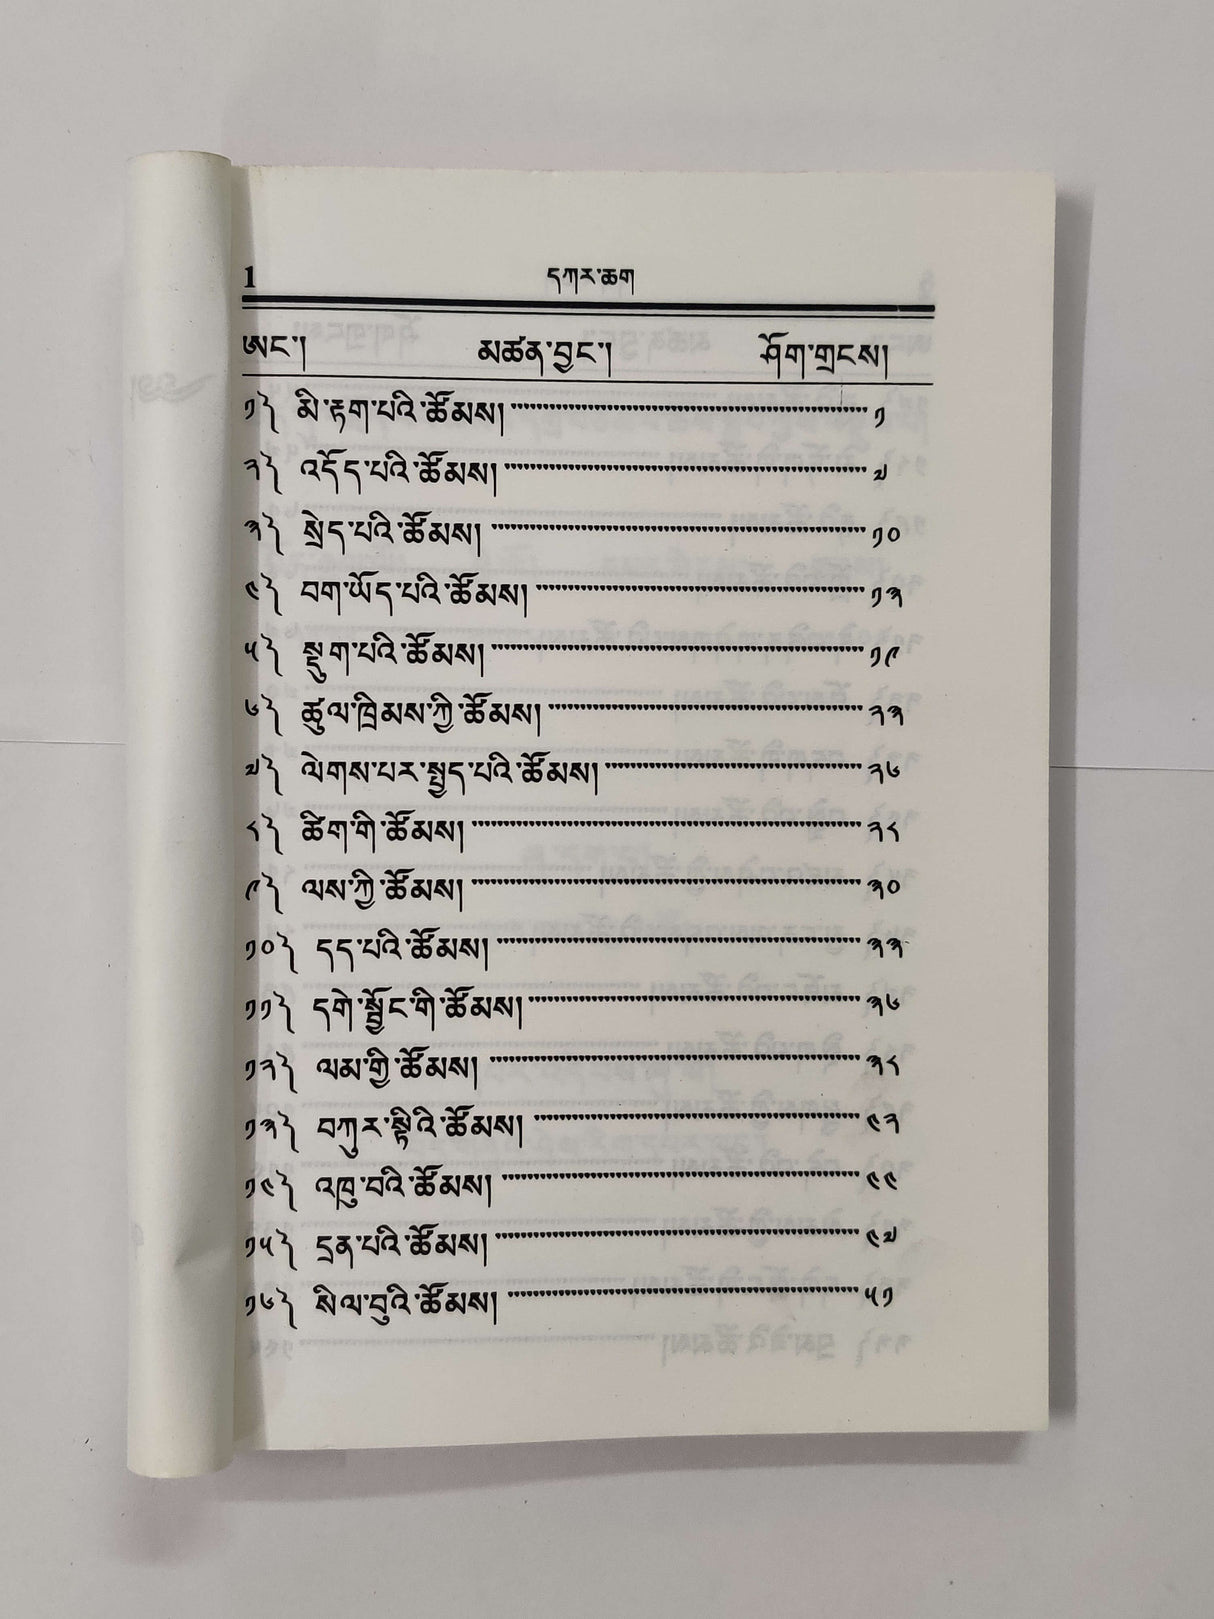 1 དཀར་ཆག
ཨང་། མཚན་བྱང་། ཤོག་གྲངས།
༡༽ མི་རྟག་པའི་ཚོམས། ༡
༢༽ འདོད་པའི་ཚོམས། ༧
༣༽ སྲེད་པའི་ཚོམས། ༡༠
༤༽ བག་ཡོད་པའི་ཚོམས། ༡༣
༥༽ སྡུག་པའི་ཚོམས། ༡༩
༦༽ ཚུལ་ཁྲིམས་ཀྱི་ཚོམས། ༢༣
༧༽ ལེགས་པར་སྤྱད་པའི་ཚོམས། ༢༦
༨༽ ཚིག་གི་ཚོམས། ༢༨
༩༽ ལས་ཀྱི་ཚོམས། ༣༠
༡༠༽ དད་པའི་ཚོམས། ༣༣
༡༡༽ དགེ་སྦྱོང་གི་ཚོམས། ༣༦
༡༢༽ ལམ་གྱི་ཚོམས། ༣༨
༡༣༽ བཀུར་སྟིའི་ཚོམས། ༤༢
༡༤༽ འཁུ་བའི་ཚོམས། ༤༤
༡༥༽ དྲན་པའི་ཚོམས། ༤༧
༡༦༽ སིལ་བུའི་ཚོམས། ༥༡